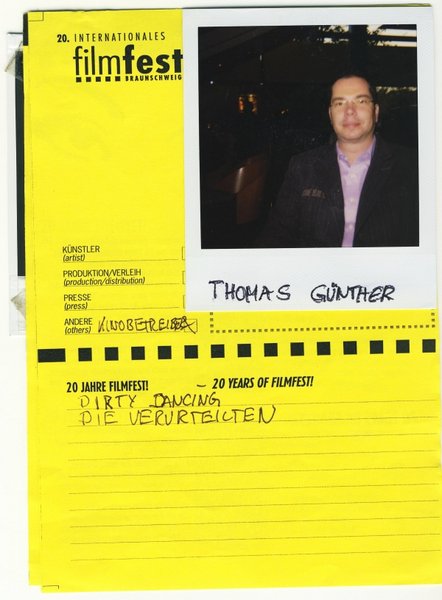 20. INTERNATIONALES
filmfest
BRAUNSCHWEIG
THOMAS GÜNTHER
KÜNSTLER
(artist)
PRODUKTION/VERLEIH
(production/distribution)
PRESSE
(press)
ANDERE KINOBETREIBER
(others)
20 JAHRE FILMFEST! – 20 YEARS OF FILMFEST!
DIRTY DANCING
DIE VERURTEILTEN